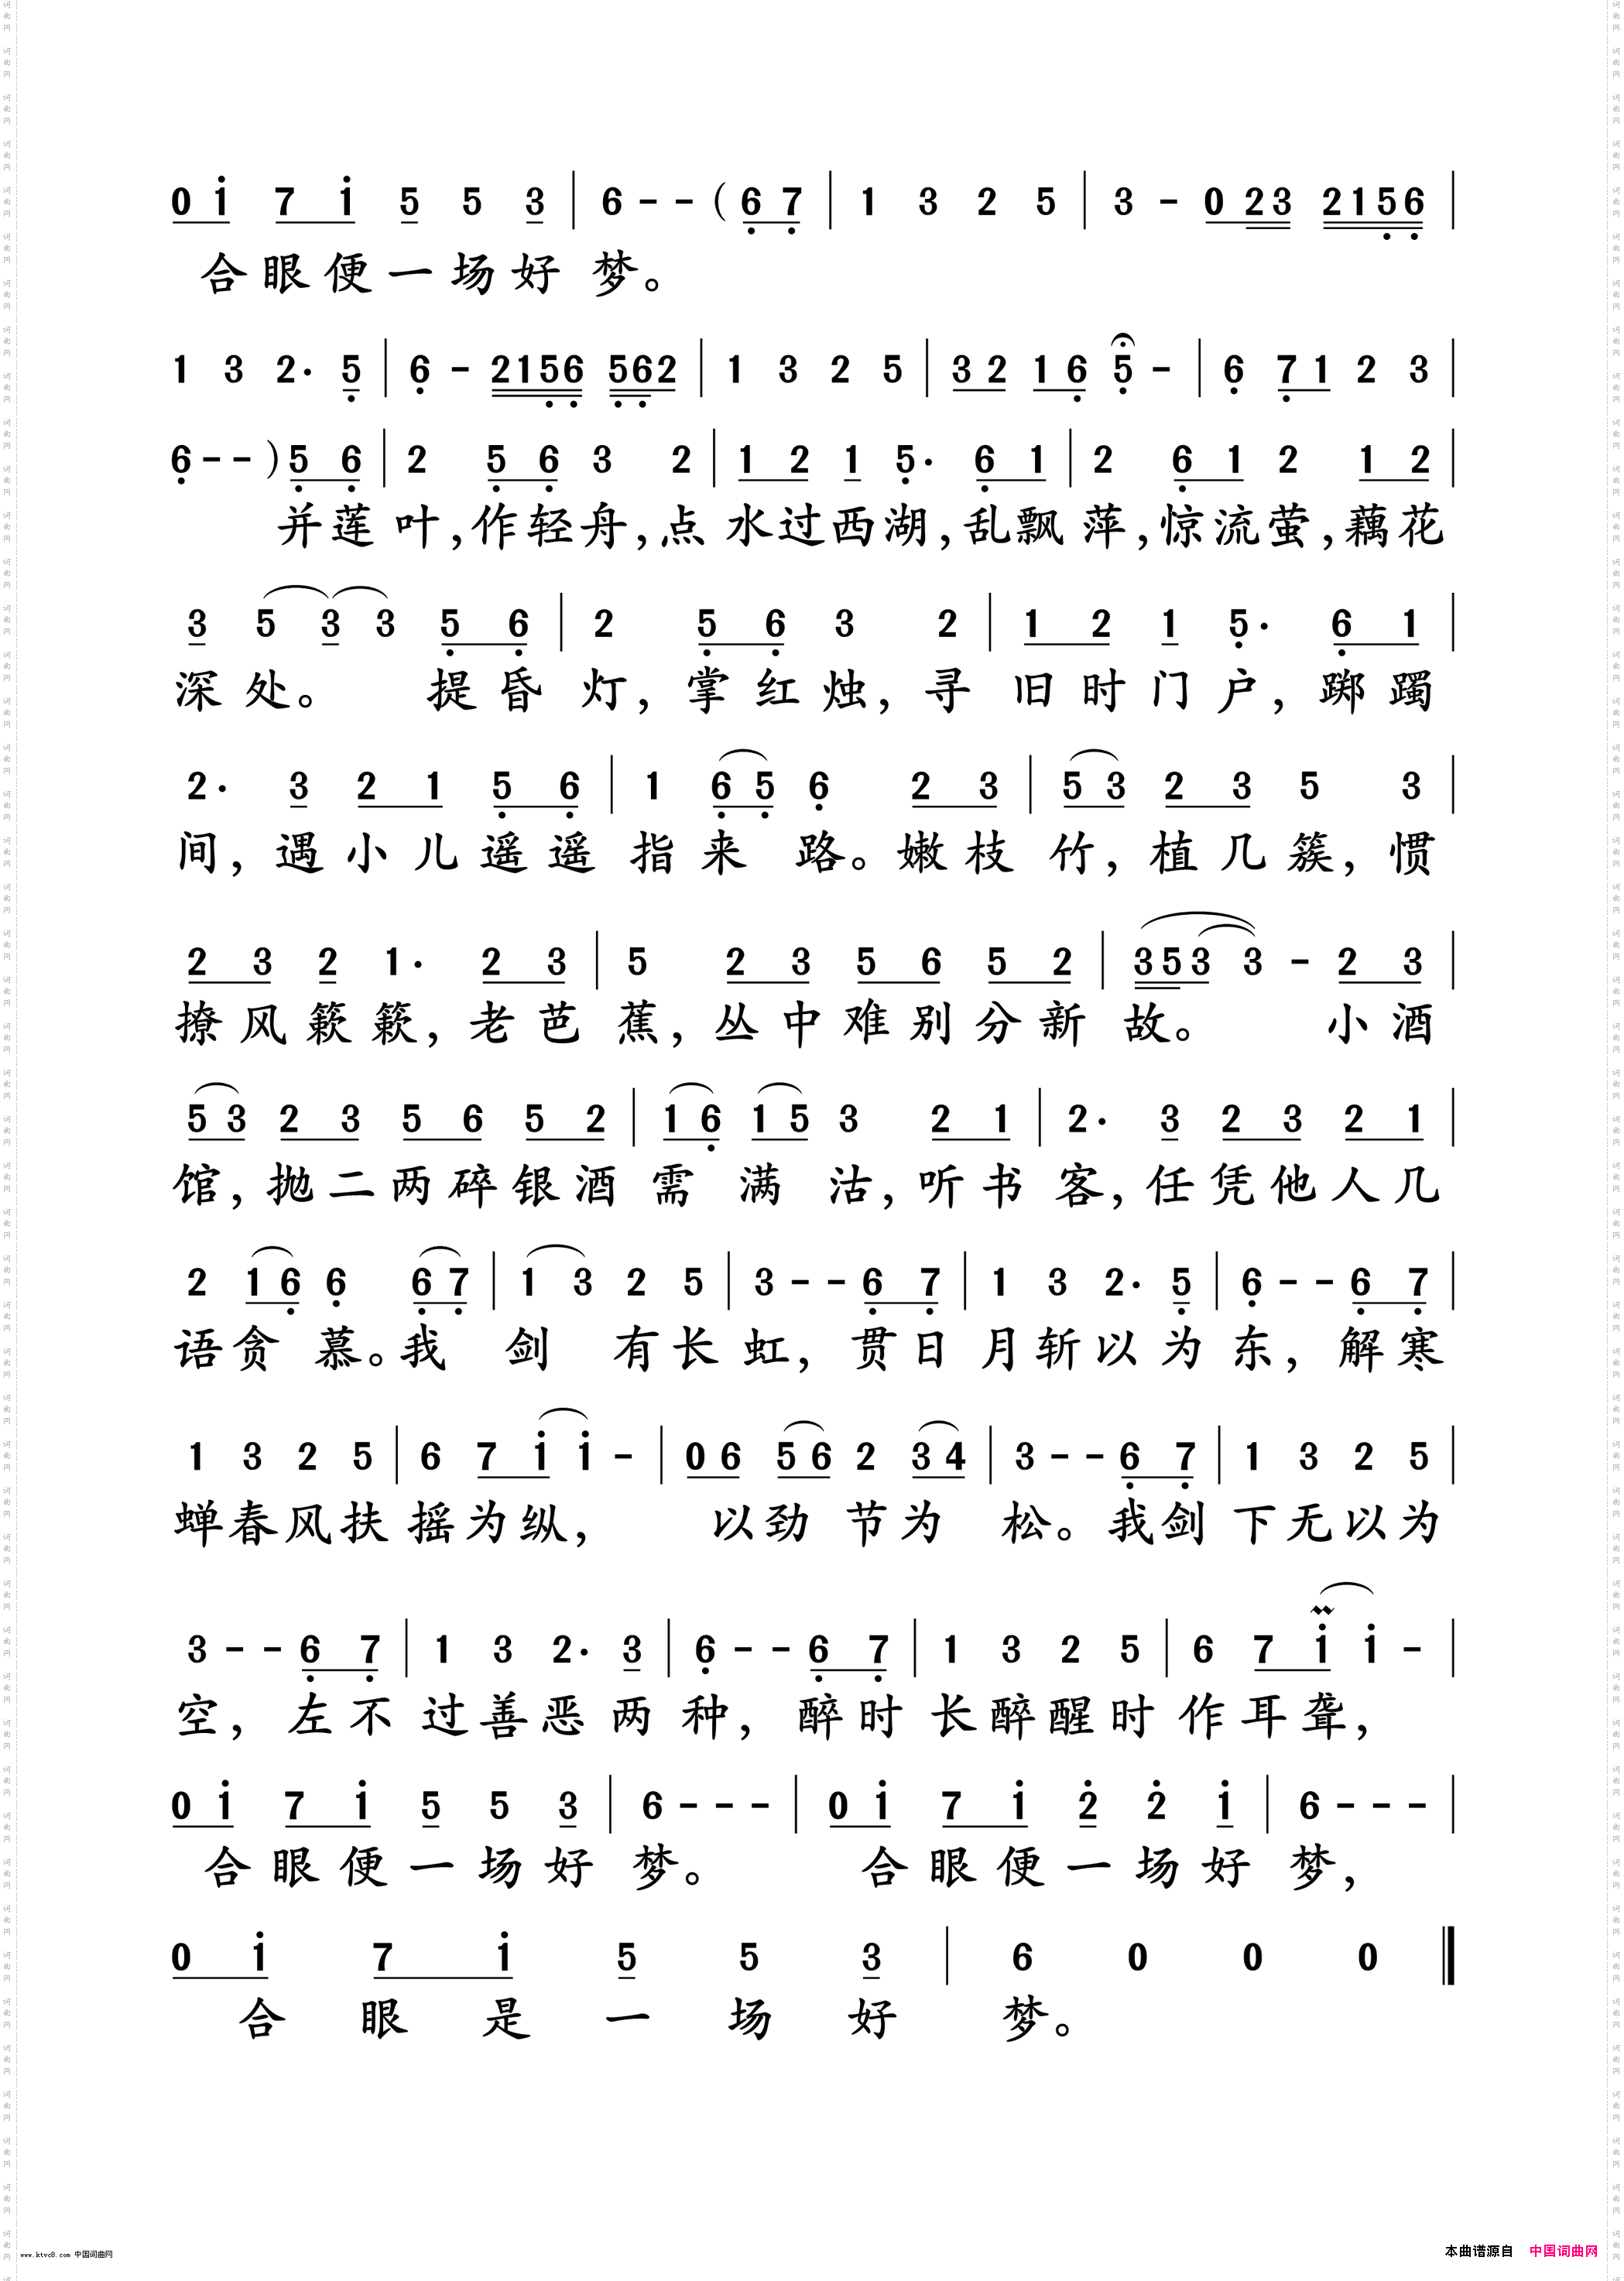 0 i 7 i 5 5 3 | 6 - - ( 6 7 | 1 3 2 5 | 3 - 0 23 2156 |
合眼便一场好 梦。
1 3 2. 5 | 6 - 2156 562 | 1 3 2 5 | 3 2 1 6 5 - | 6 7 1 2 3 |
6 - - ) 5 6 | 2 5 6 3 2 | 1 2 1 5. 6 1 | 2 6 1 2 1 2 |
并莲叶,作轻舟,点水过西湖,乱飘萍,惊流萤,藕花
3 5 3 3 5 6 | 2 5 6 3 2 | 1 2 1 5. 6 1 |
深处。 提昏灯,掌红烛,寻旧时门户,踯躅
2. 3 2 1 5 6 | 1 6 5 6 2 3 | 5 3 2 3 5 3 |
间,遇小儿遥遥指来路。嫩枝竹,植几簇,惯
2 3 2 1. 2 3 | 5 2 3 5 6 5 2 | 353 3 - 2 3 |
撩风簌簌,老芭蕉,丛中难别分新故。 小酒
5 3 2 3 5 6 5 2 | 1 6 1 5 3 2 1 | 2. 3 2 3 2 1 |
馆,抛二两碎银酒需满沽,听书客,任凭他人几
2 1 6 6 6 7 | 1 3 2 5 | 3 - - 6 7 | 1 3 2. 5 | 6 - - 6 7 |
语贪慕。我剑有长虹,贯日月斩以为东,解寒
1 3 2 5 | 6 7 i i - | 0 6 5 6 2 3 4 | 3 - - 6 7 | 1 3 2 5 |
蝉春风扶摇为纵, 以劲节为松。我剑下无以为
3 - - 6 7 | 1 3 2. 3 | 6 - - 6 7 | 1 3 2 5 | 6 7 i i - |
空,左不过善恶两种,醉时长醉醒时作耳聋,
0 i 7 i 5 5 3 | 6 - - - | 0 i 7 i 2 2 i | 6 - - - |
合眼便一场好梦。 合眼便一场好梦,
0 i 7 i 5 5 3 | 6 0 0 0
合眼是一场好梦。
www.ktvc8.com 中国词曲网
本曲谱源自 中国词曲网